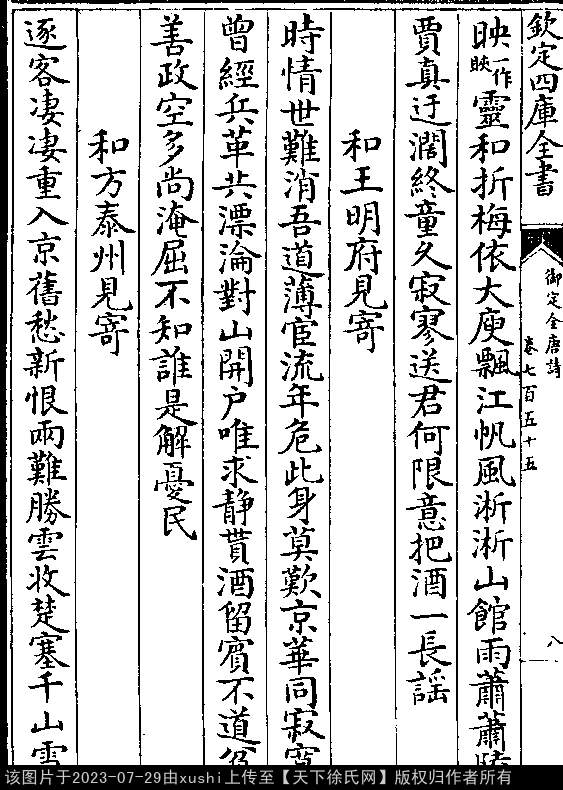 欽定四庫全書
御定全唐詩
卷七百五十五
八
映一作映靈和折梅依大庾飄江帆風淅淅山館雨蕭蕭
賈真迂濶終童久寂寥送君何限意把酒一長謡
和王明府見寄
時情世難消吾道薄宦流年危此身莫歎京華同寂
曾經兵革共漂淪對山開户唯求靜貰酒留賔不道
善政空多尚淹屈不知誰是解憂民
和方泰州見寄
逐客凄凄重入京舊愁新恨兩難勝雲收楚塞千山雪
该图片于2023-07-29由xushi上传至【天下徐氏网】版权归作者所有